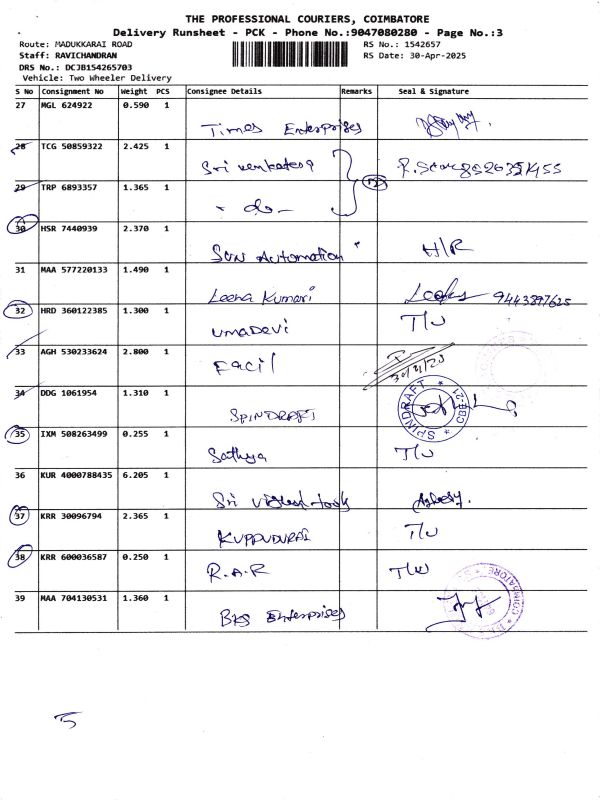 THE PROFESSIONAL COURIERS, COIMBATORE
Delivery Runsheet - PCK - Phone No.:9047080280 - Page No.:3
Route: MADUKKARAI ROAD RS No.: 1542657
Staff: RAVICHANDRAN RS Date: 30-Apr-2025
DRS No.: DCJB154265703
Vehicle: Two Wheeler Delivery
S No Consignment No Weight PCS Consignee Details Remarks Seal & Signature
27 MGL 624922 0.590 1
Times Enterprises
28 TCG 50859322 2.425 1
Sri venkatesa
29 TRP 6893357 1.365 1
- do -
30 HSR 7440939 2.370 1
Sun Automation H/R
31 MAA 577220133 1.490 1
Leena Kumari 9443897625
32 HRD 360122385 1.300 1
umaDevi T/U
33 AGH 530233624 2.800 1
Facil 30/4/25
34 DDG 1061954 1.310 1
SPINDRAFT SPINDRAFT * CBE-21 *
35 IXM 508263499 0.255 1
Sathya T/U
36 KUR 4000788435 6.205 1
Sri
37 KRR 30096794 2.365 1
KUPPUDURAI T/U
38 KRR 600036587 0.250 1
R.A.R T/U
39 MAA 704130531 1.360 1
BKS Enterprises
5